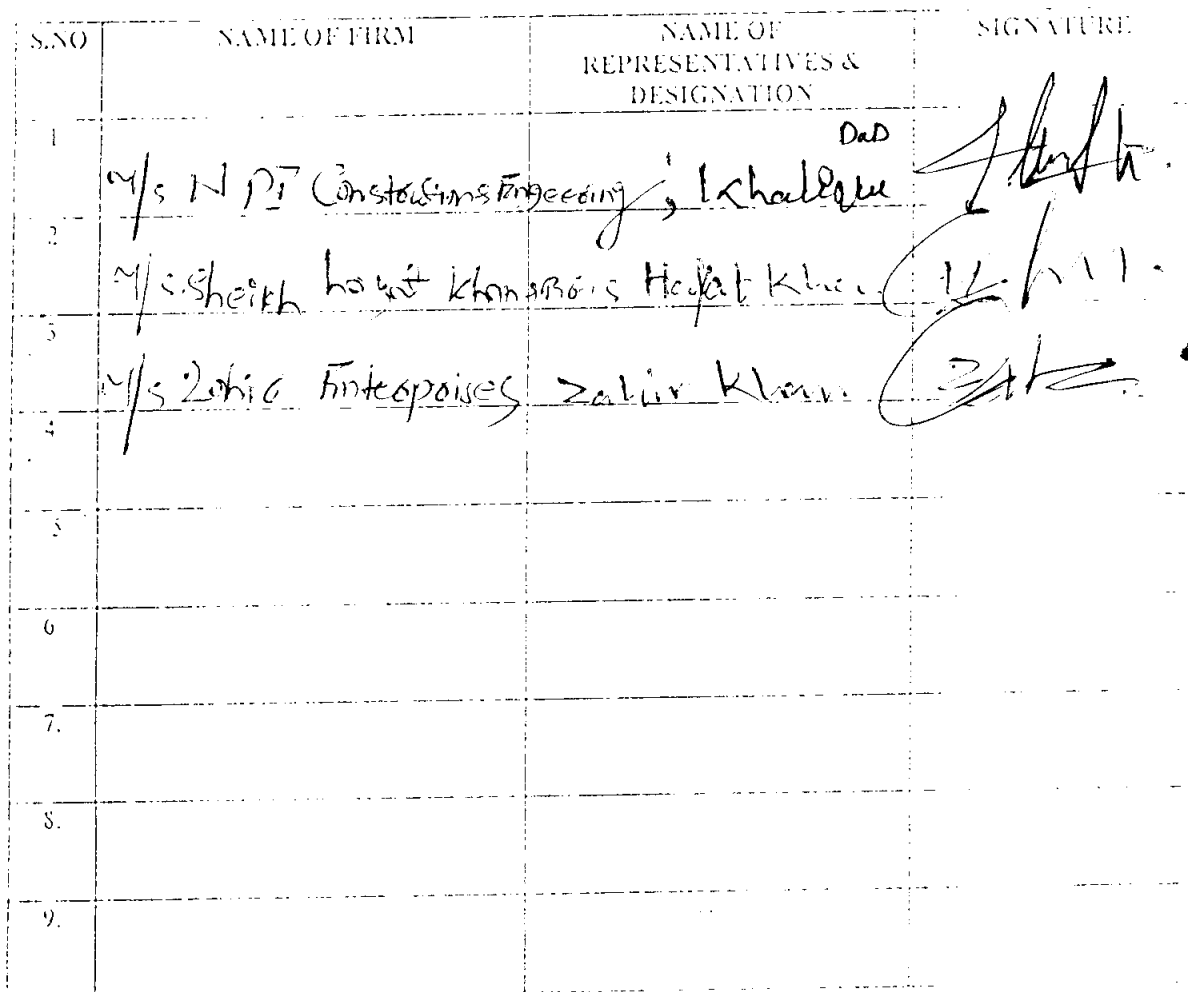 S.NO NAME OF FIRM NAME OF REPRESENTATIVES & DESIGNATION SIGNATURE
1 M/s N PI Constructions Engeering Khaleque DaD
2 M/s. Sheikh hayat Khan & Bros Hayat Khan
3 M/s Zahir Enterprises Zahir Khan
4
5
6
7.
8.
9.